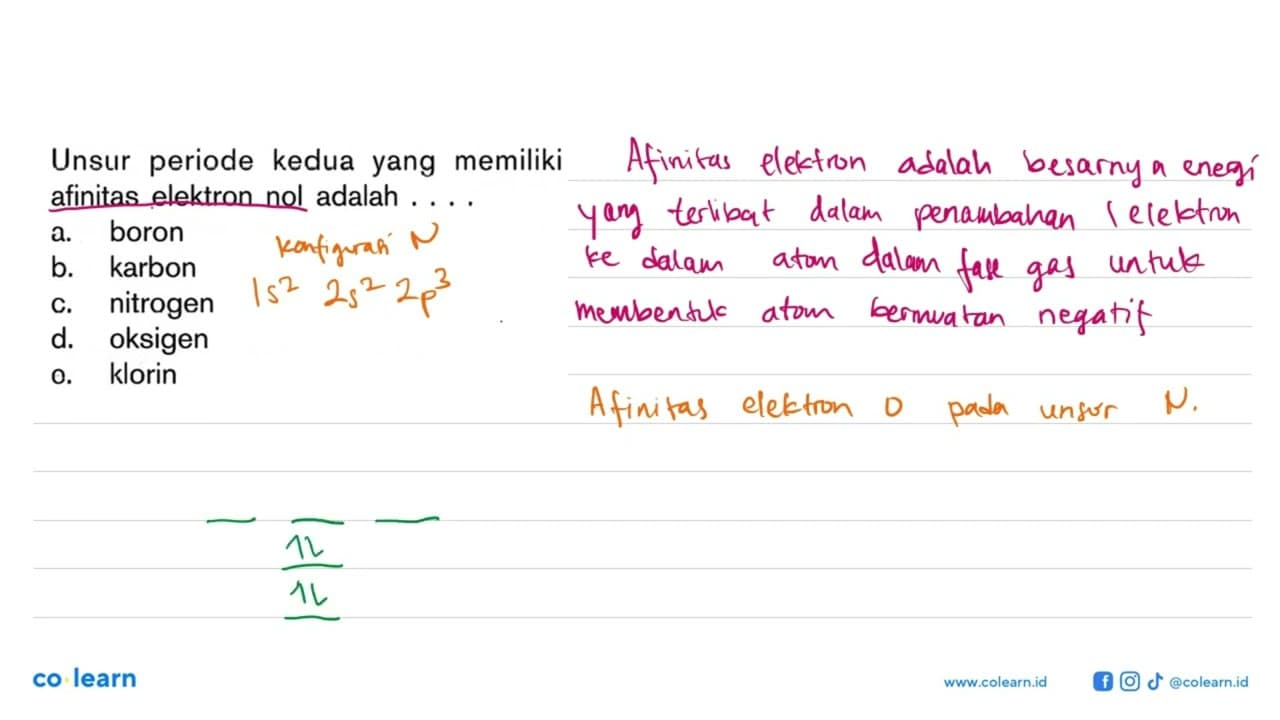 Unsur periode kedua yang memiliki
afinitas elektron nol adalah . . . .
a. boron
b. karbon
c. nitrogen
d. oksigen
e. klorin
Konfigurasi N
1s² 2s² 2p³
Afinitas elektron adalah besarnya enegi
yang terlibat dalam penambahan 1 elektron
ke dalam atom dalam fase gas untuk
membentuk atom bermuatan negatif
Afinitas elektron 0 pada unsur N.
1l
1l
co learn
www.colearn.id @colearn.id